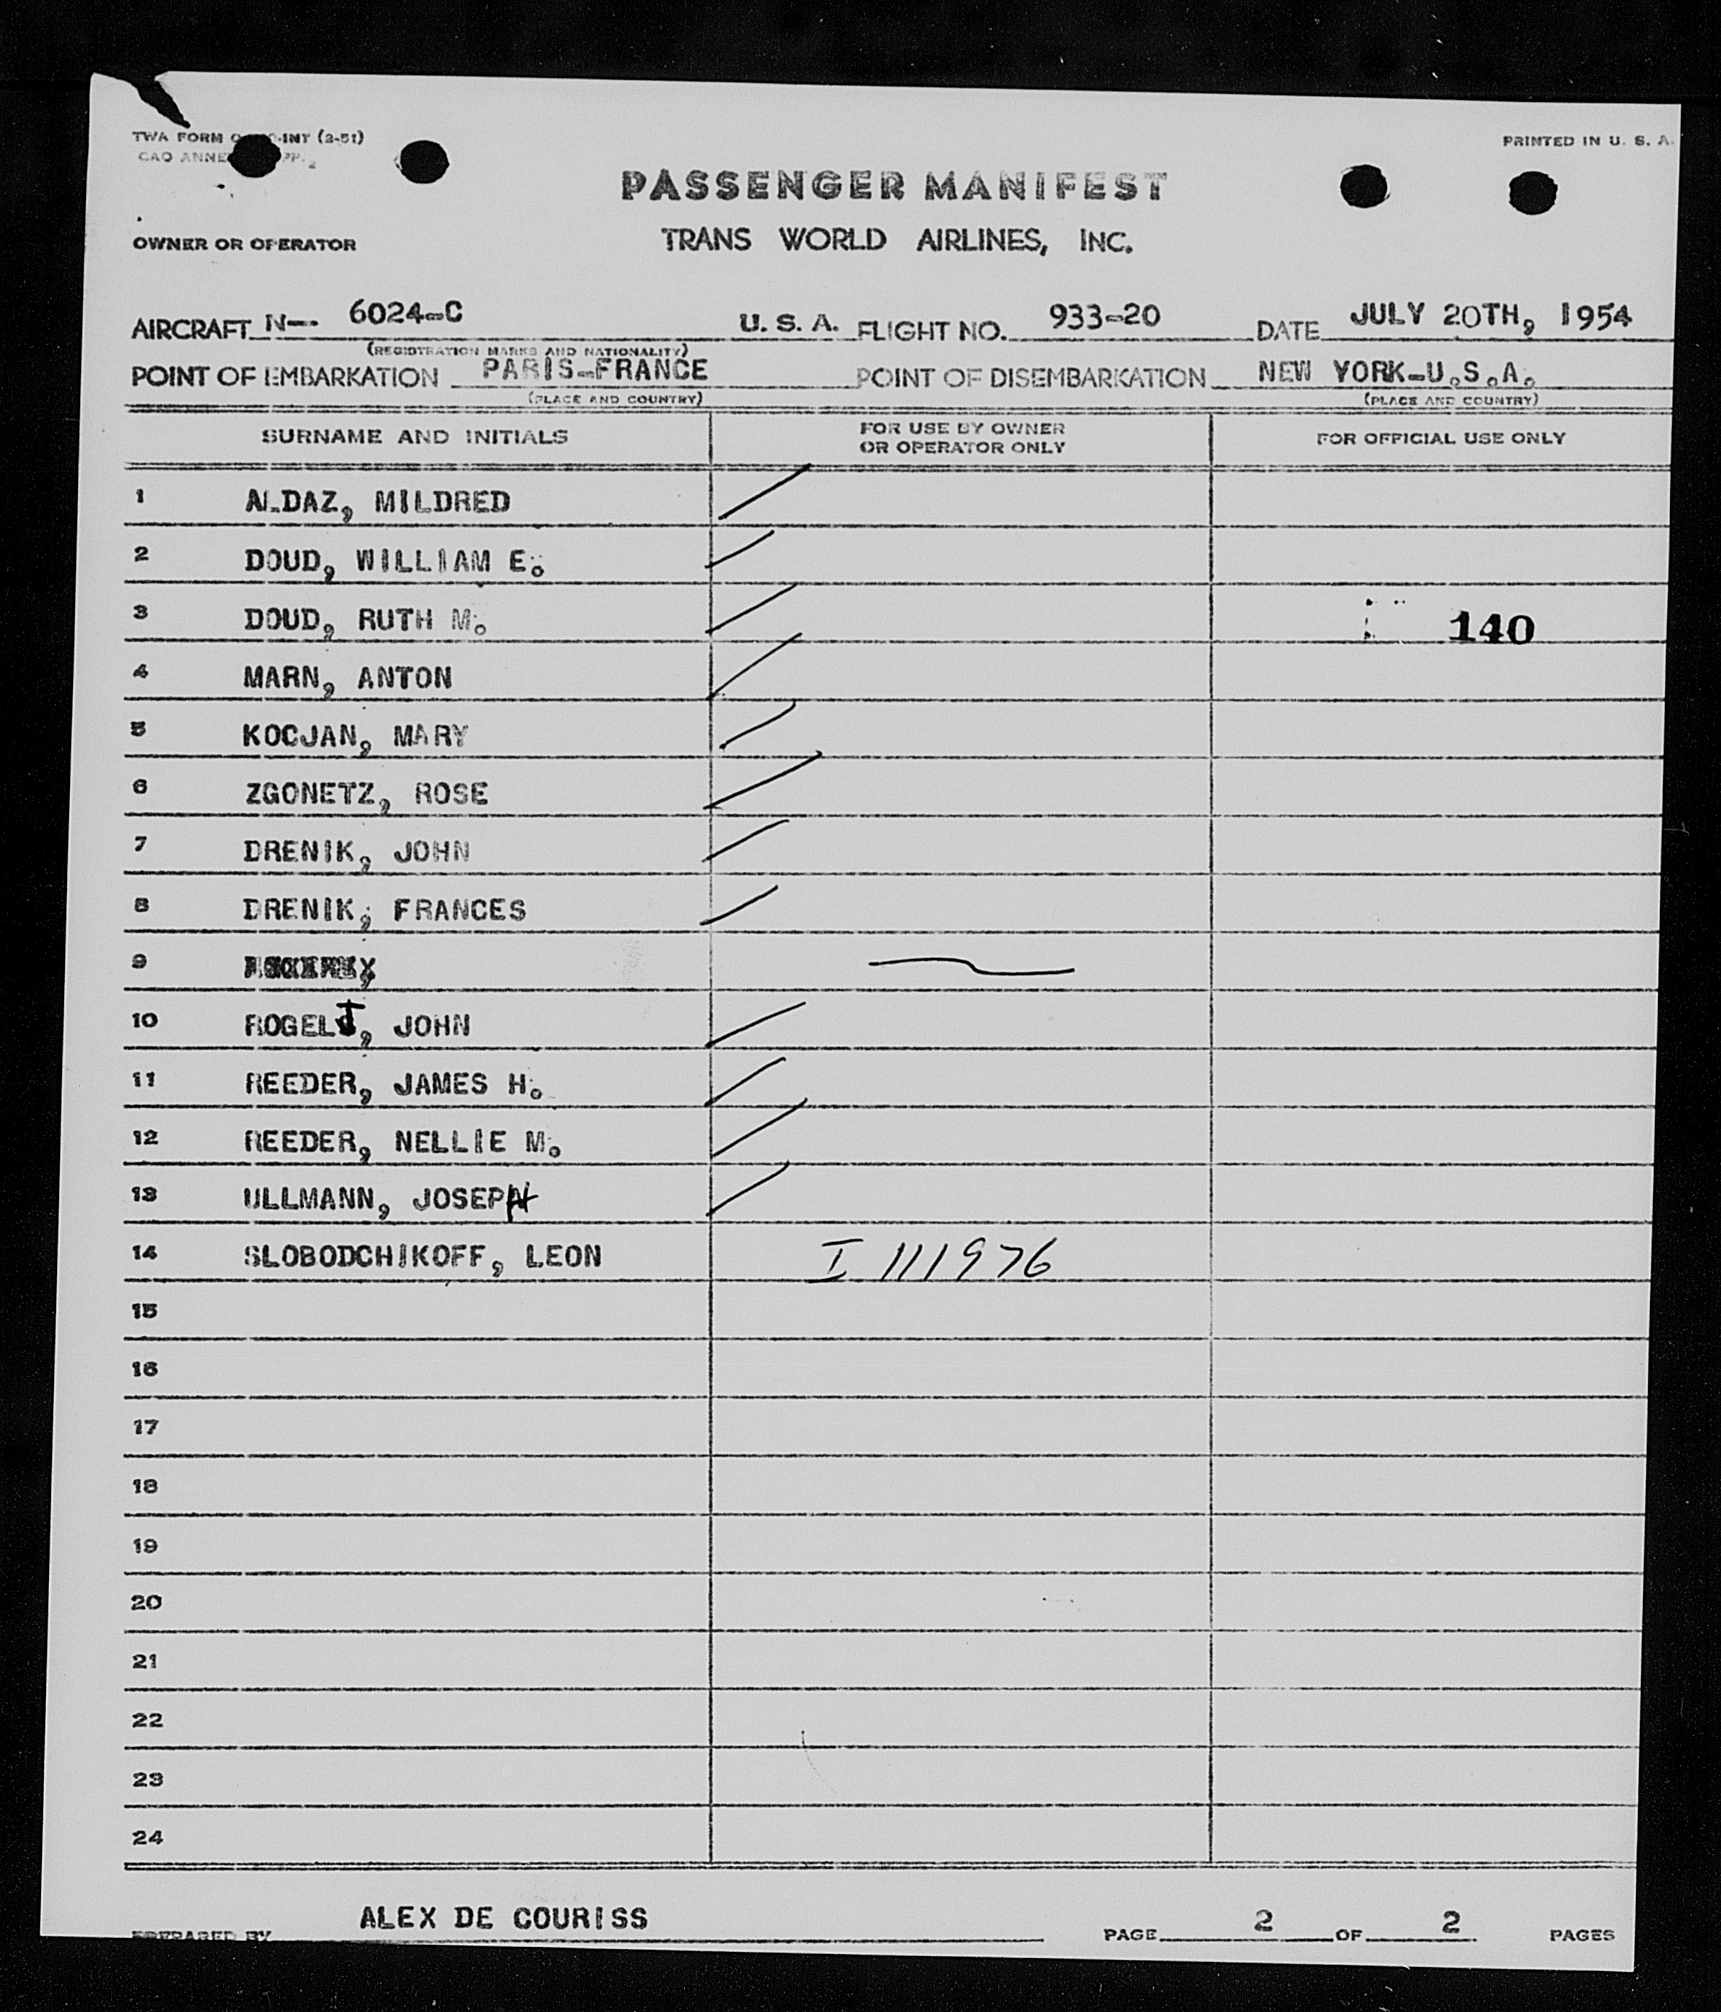 TWA FORM INT (2-51)
PRINTED IN U. S. A.
CAO ANNE
PASSENGER MANIFEST
OWNER OR OPERATOR
TRANS WORLD AIRLINES, INC.
AIRCRAFT N-- 6024-C U. S. A. FLIGHT NO. 933-20 DATE JULY 20TH, 1954
(REGISTRATION MARKS AND NATIONALITY)
POINT OF EMBARKATION PARIS-FRANCE POINT OF DISEMBARKATION NEW YORK-U.S.A.
(PLACE AND COUNTRY) (PLACE AND COUNTRY)
SURNAME AND INITIALS
FOR USE BY OWNER
OR OPERATOR ONLY
FOR OFFICIAL USE ONLY
1 ALDAZ, MILDRED
2 DOUD, WILLIAM E.
3 DOUD, RUTH M. 140
4 MARN, ANTON
5 KOCJAN, MARY
6 ZGONETZ, ROSE
7 DRENIK, JOHN
8 DRENIK, FRANCES
9
10 ROGELJ, JOHN
11 REEDER, JAMES H.
12 REEDER, NELLIE M.
13 ULLMANN, JOSEPH
14 SLOBODCHIKOFF, LEON I 111976
15
16
17
18
19
20
21
22
23
24
PREPARED BY ALEX DE COURISS PAGE 2 OF 2 PAGES